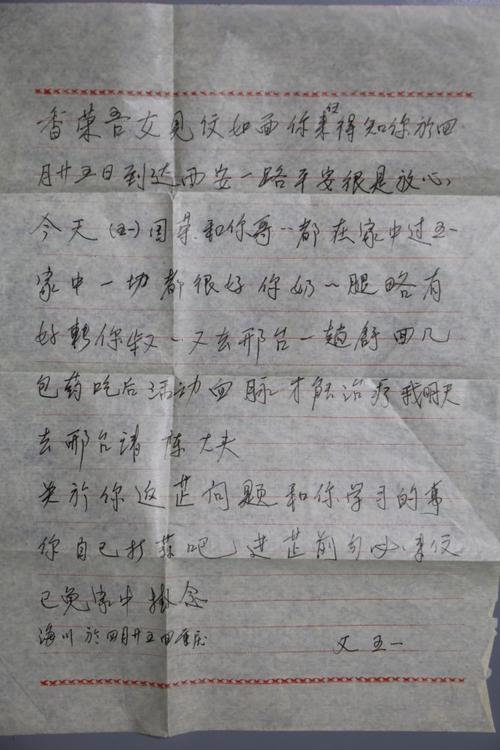 香荣吾文见仅如面你来信得知你於四
月廿五日到达西安一路平安很是放心
今天(五一)国荣和你哥〻都在家中过五一
家中一切都很好你奶〻腿略有
好轉你叔〻又去邢台一趟舒回几
包药吃后活动血脉才能治疗我明天
去邢台请陈大夫
关於你这芷问题和你学习的事
你自己打算吧 芷前勾
已免家中掛念
海川於四月廿五回重庆
父 五一